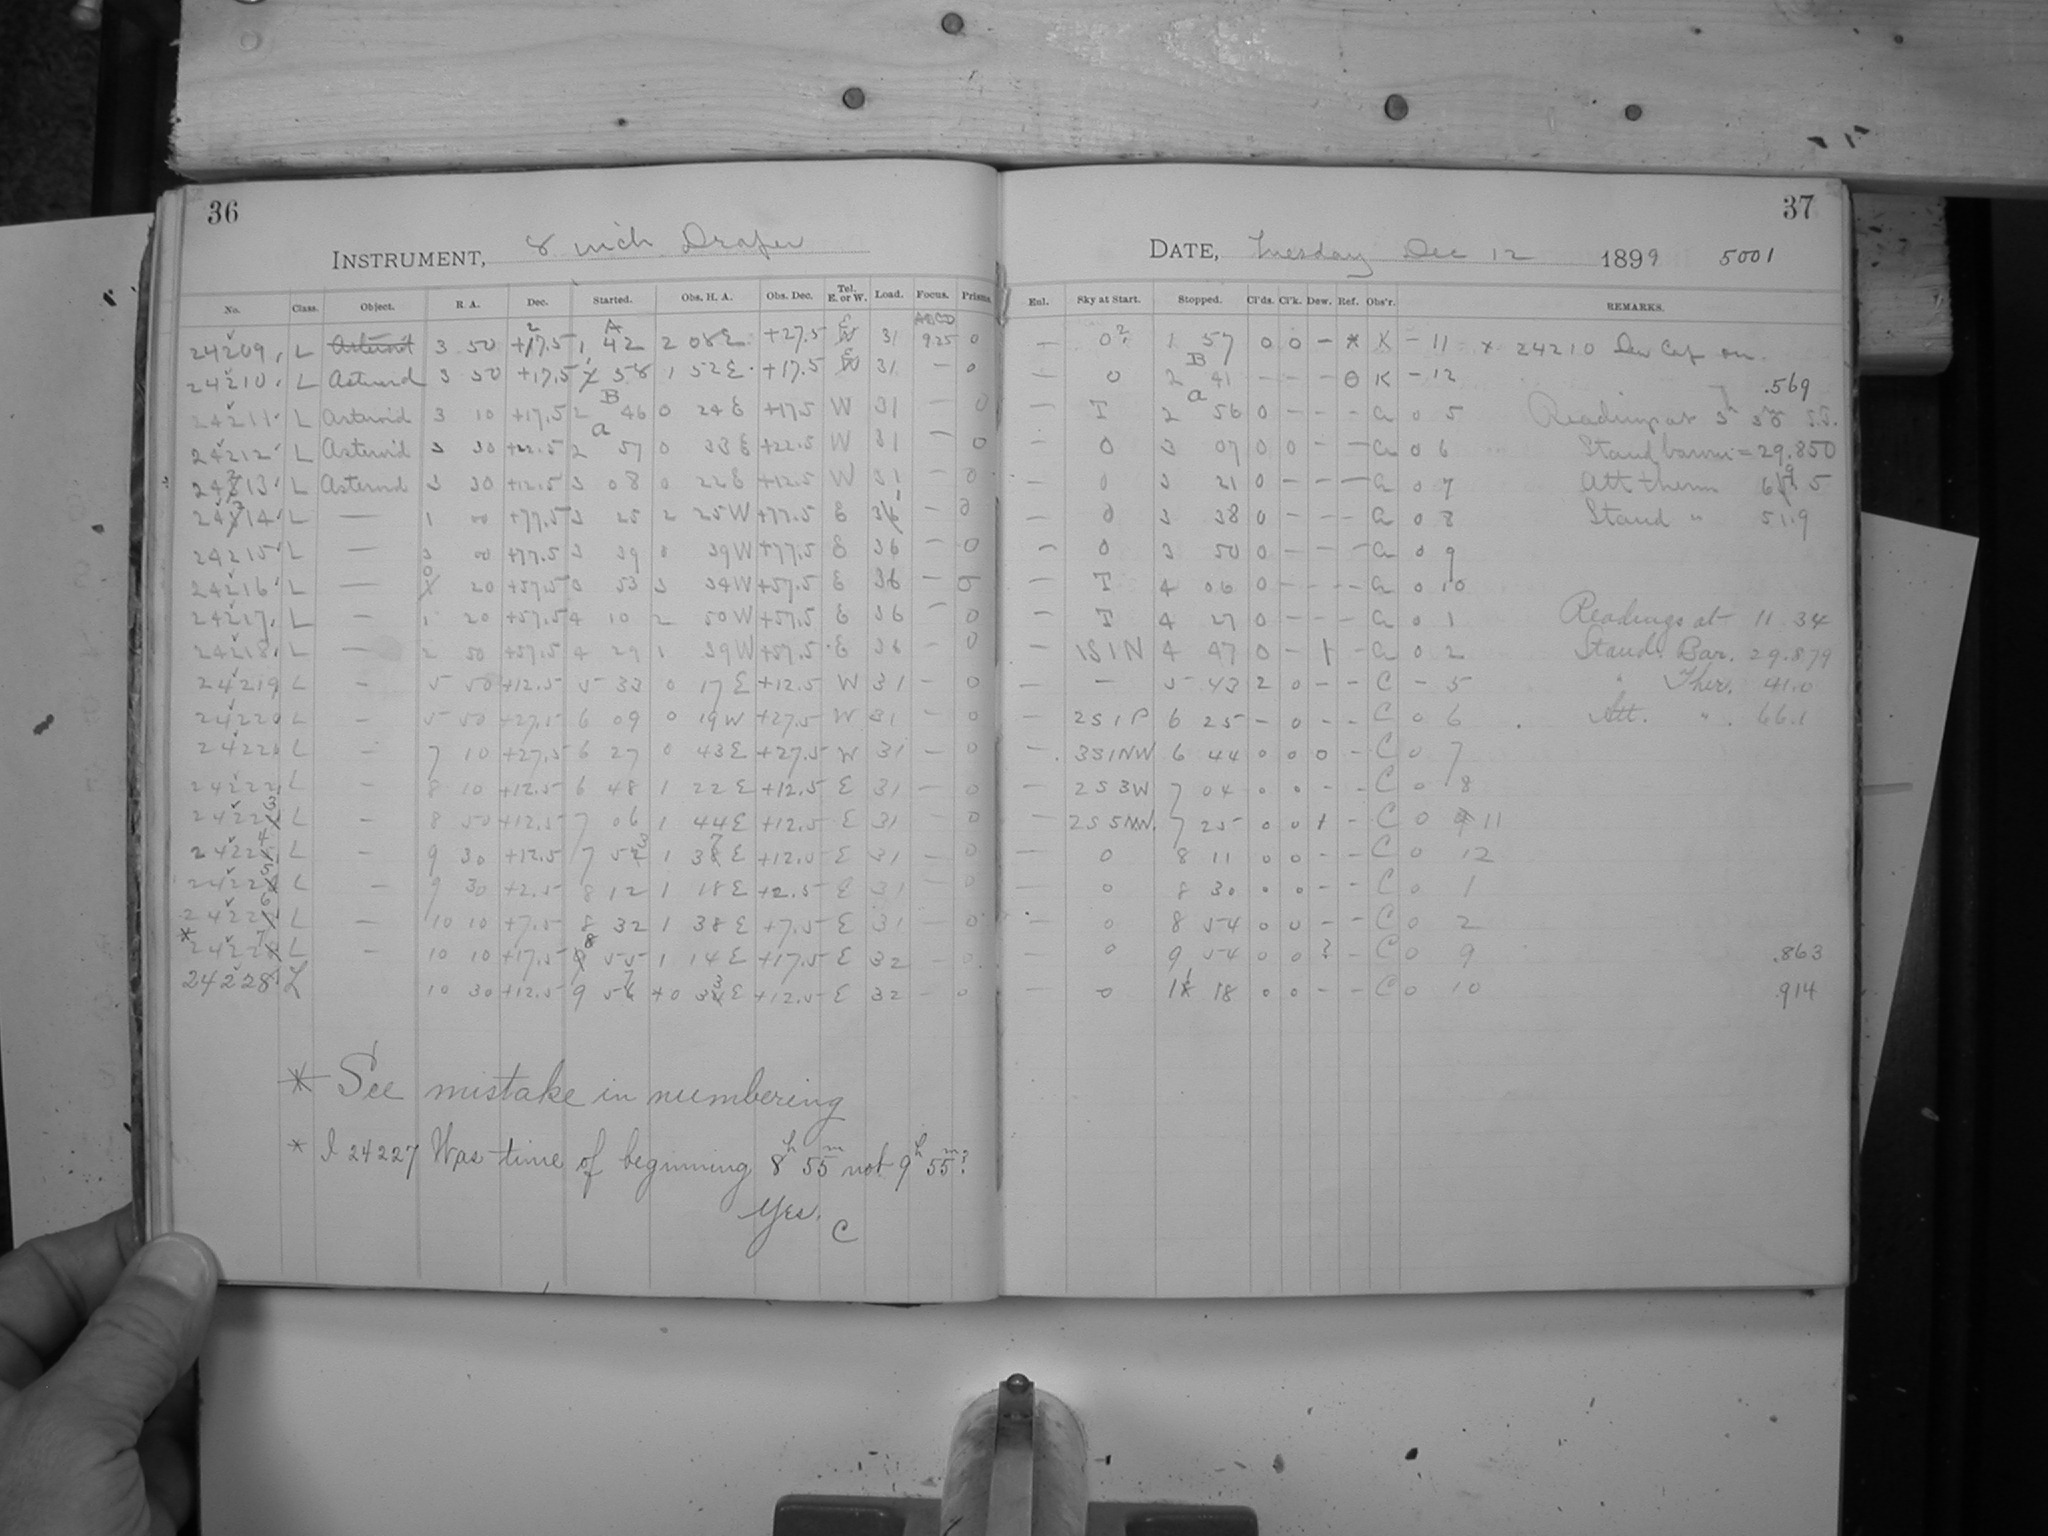 36
37
INSTRUMENT, 8 inch Draper
DATE, Tuesday Dec 12 1899 5001
No. Class. Object. R. A. Dec. Started. Obs. H. A. Obs. Dec. Tel. E. or W. Load. Focus. Prisms.
Enl. Sky at Start. Stopped. Cl'ds. Cl'k. Dew. Ref. Obs'r. REMARKS.
24209 L Asteroid 3 50 1 42 2 08 E +27.5 31 925 0 — 1 57 0 0 – * K – 11 * 24210 Dew Cap on.
24210 L Asteroid 3 50 +17.5 58 1 52 E +17.5 31 — 0 — 0 2 41 – – – K – 12 .569
24211 L Asteroid 3 10 +17.5 2 46 0 24 E +17.5 W 31 — 0 — T 2 56 0 – – – a 0 5 Reading at
24212 L Asteroid 3 30 +22.5 2 57 0 33 E +22.5 W 31 — 0 — 0 3 07 0 0 – – a 0 6 Stand barom = 29.850
24213 L Asteroid 3 30 +12.5 3 08 0 22 E +12.5 W 31 — 0 — 0 3 21 0 – – – a 0 7 Att therm
24214 L — 1 00 +77.5 3 25 2 25 W +77.5 E — 0 — 0 3 38 0 – – – a 0 8 Stand " 51.9
24215 L — 3 00 +77.5 3 39 0 39 W +77.5 E 36 — 0 — 0 3 50 0 – – – a 0 9
24216 L — 0 20 +57.5 3 53 3 34 W +57.5 E 36 — 0 — T 4 06 0 – – – a 0 10
24217 L — 1 20 +57.5 4 10 2 50 W +57.5 E 36 — 0 — T 4 27 0 – – – a 0 1 Readings at 11 34
24218 L — 2 50 +57.5 4 29 1 39 W +57.5 E 36 — 0 — 1S1N 4 47 0 – 1 – a 0 2 Stand. Bar. 29.879
24219 L — 5 50 +12.5 5 33 0 17 E +12.5 W 31 — 0 — — 5 43 2 0 – – C – 5 " Ther. 41.0
24220 L — 5 50 +27.5 6 09 0 19 W +27.5 W 31 — 0 — 2S1P 6 25 – 0 – – C 0 6 Att. " 66.1
2422 L — 7 10 +27.5 6 27 0 43 E +27.5 W 31 — 0 — 3S1NW 6 44 0 0 0 – C 0 7
24222 L — 8 10 +12.5 6 48 1 22 E +12.5 E 31 — 0 — 2S3W 7 04 0 0 – – C 0 8
24223 L — 8 50 +12.5 7 06 1 44 E +12.5 E 31 — 0 — 7 25 0 0 1 – C 0 11
24224 L — 9 30 +12.5 7 53 1 37 E +12.5 E 31 — 0 — 0 8 11 0 0 – – C 0 12
24225 L — 9 30 +2.5 8 12 1 18 E +2.5 E 31 — 0 — 0 8 30 0 0 – – C 0 1
24226 L — 10 10 +7.5 8 32 1 38 E +7.5 E 31 — 0 — 0 8 54 0 0 – – C 0 2
* 24227 L — 10 10 +17.5 8 55 1 14 E +17.5 E 32 — 0 — 0 9 54 0 0 – C 0 9 .863
24228 L 10 30 +12.5 9 57 +0 33 E +12.5 E 32 — 0 — 0 11 18 0 0 – – C 0 10 .914
* See mistake in numbering
* I 24227 Was time of beginning 8h 55m not 9h 55m?
Yes. C